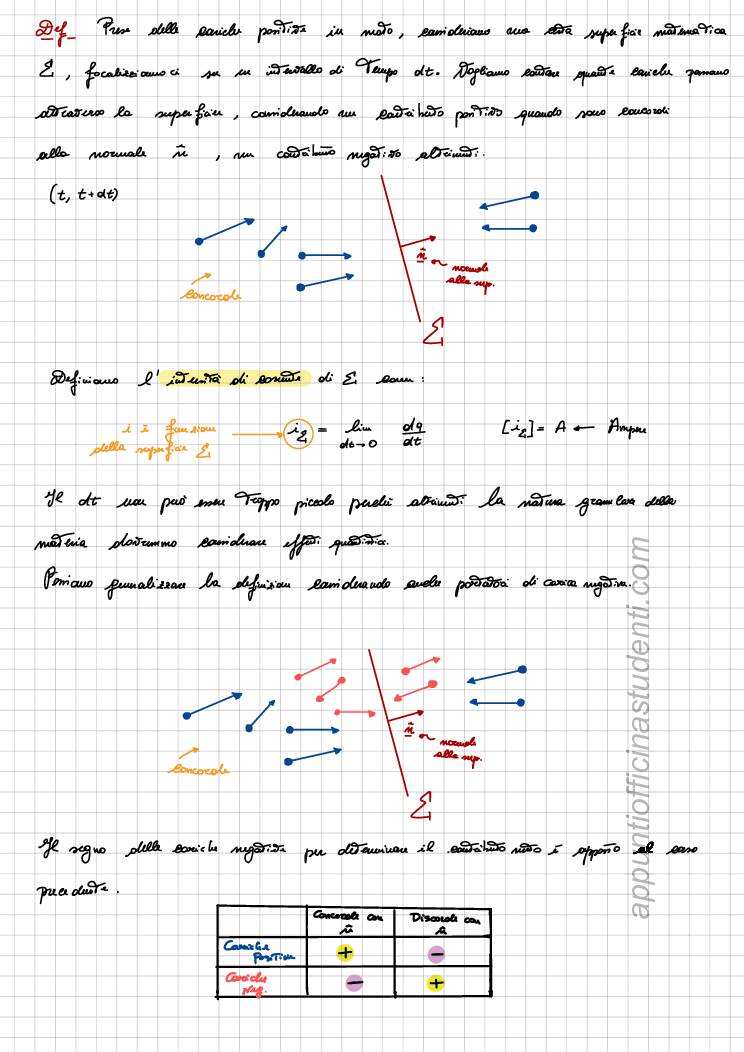 Def - Prese delle cariche positive in moto, consideriamo una superficie matematica
Σ, focalizziamoci su un intervallo di Tempo dt. Vogliamo contare quante cariche passano
attraverso la superficie, considerando un contributo positivo quando sono concordi
alla normale n̂, un contributo negativo altrimenti.
(t, t+dt)
n̂
normale
alla sup.
concorde
Σ
Definiamo l'intensità di corrente di Σ come:
i è funzione
della superficie Σ
i_Σ = lim dt→0 dq/dt [i_Σ] = A ← Ampere
Il dt non può essere Troppo piccolo perché altrimenti la natura granulare della
materia dovremmo considerare effetti quantistici.
Possiamo generalizzare la definizione considerando anche portatori di carica negativa.
n̂
normale
alla sup.
concorde
Σ
Il segno delle cariche negative per determinare il contributo netto è opposto al caso
precedente.
Concorde con n̂ Discorde con n̂
Cariche Positive + -
Cariche Neg. - +
appuntiofficinastudenti.com